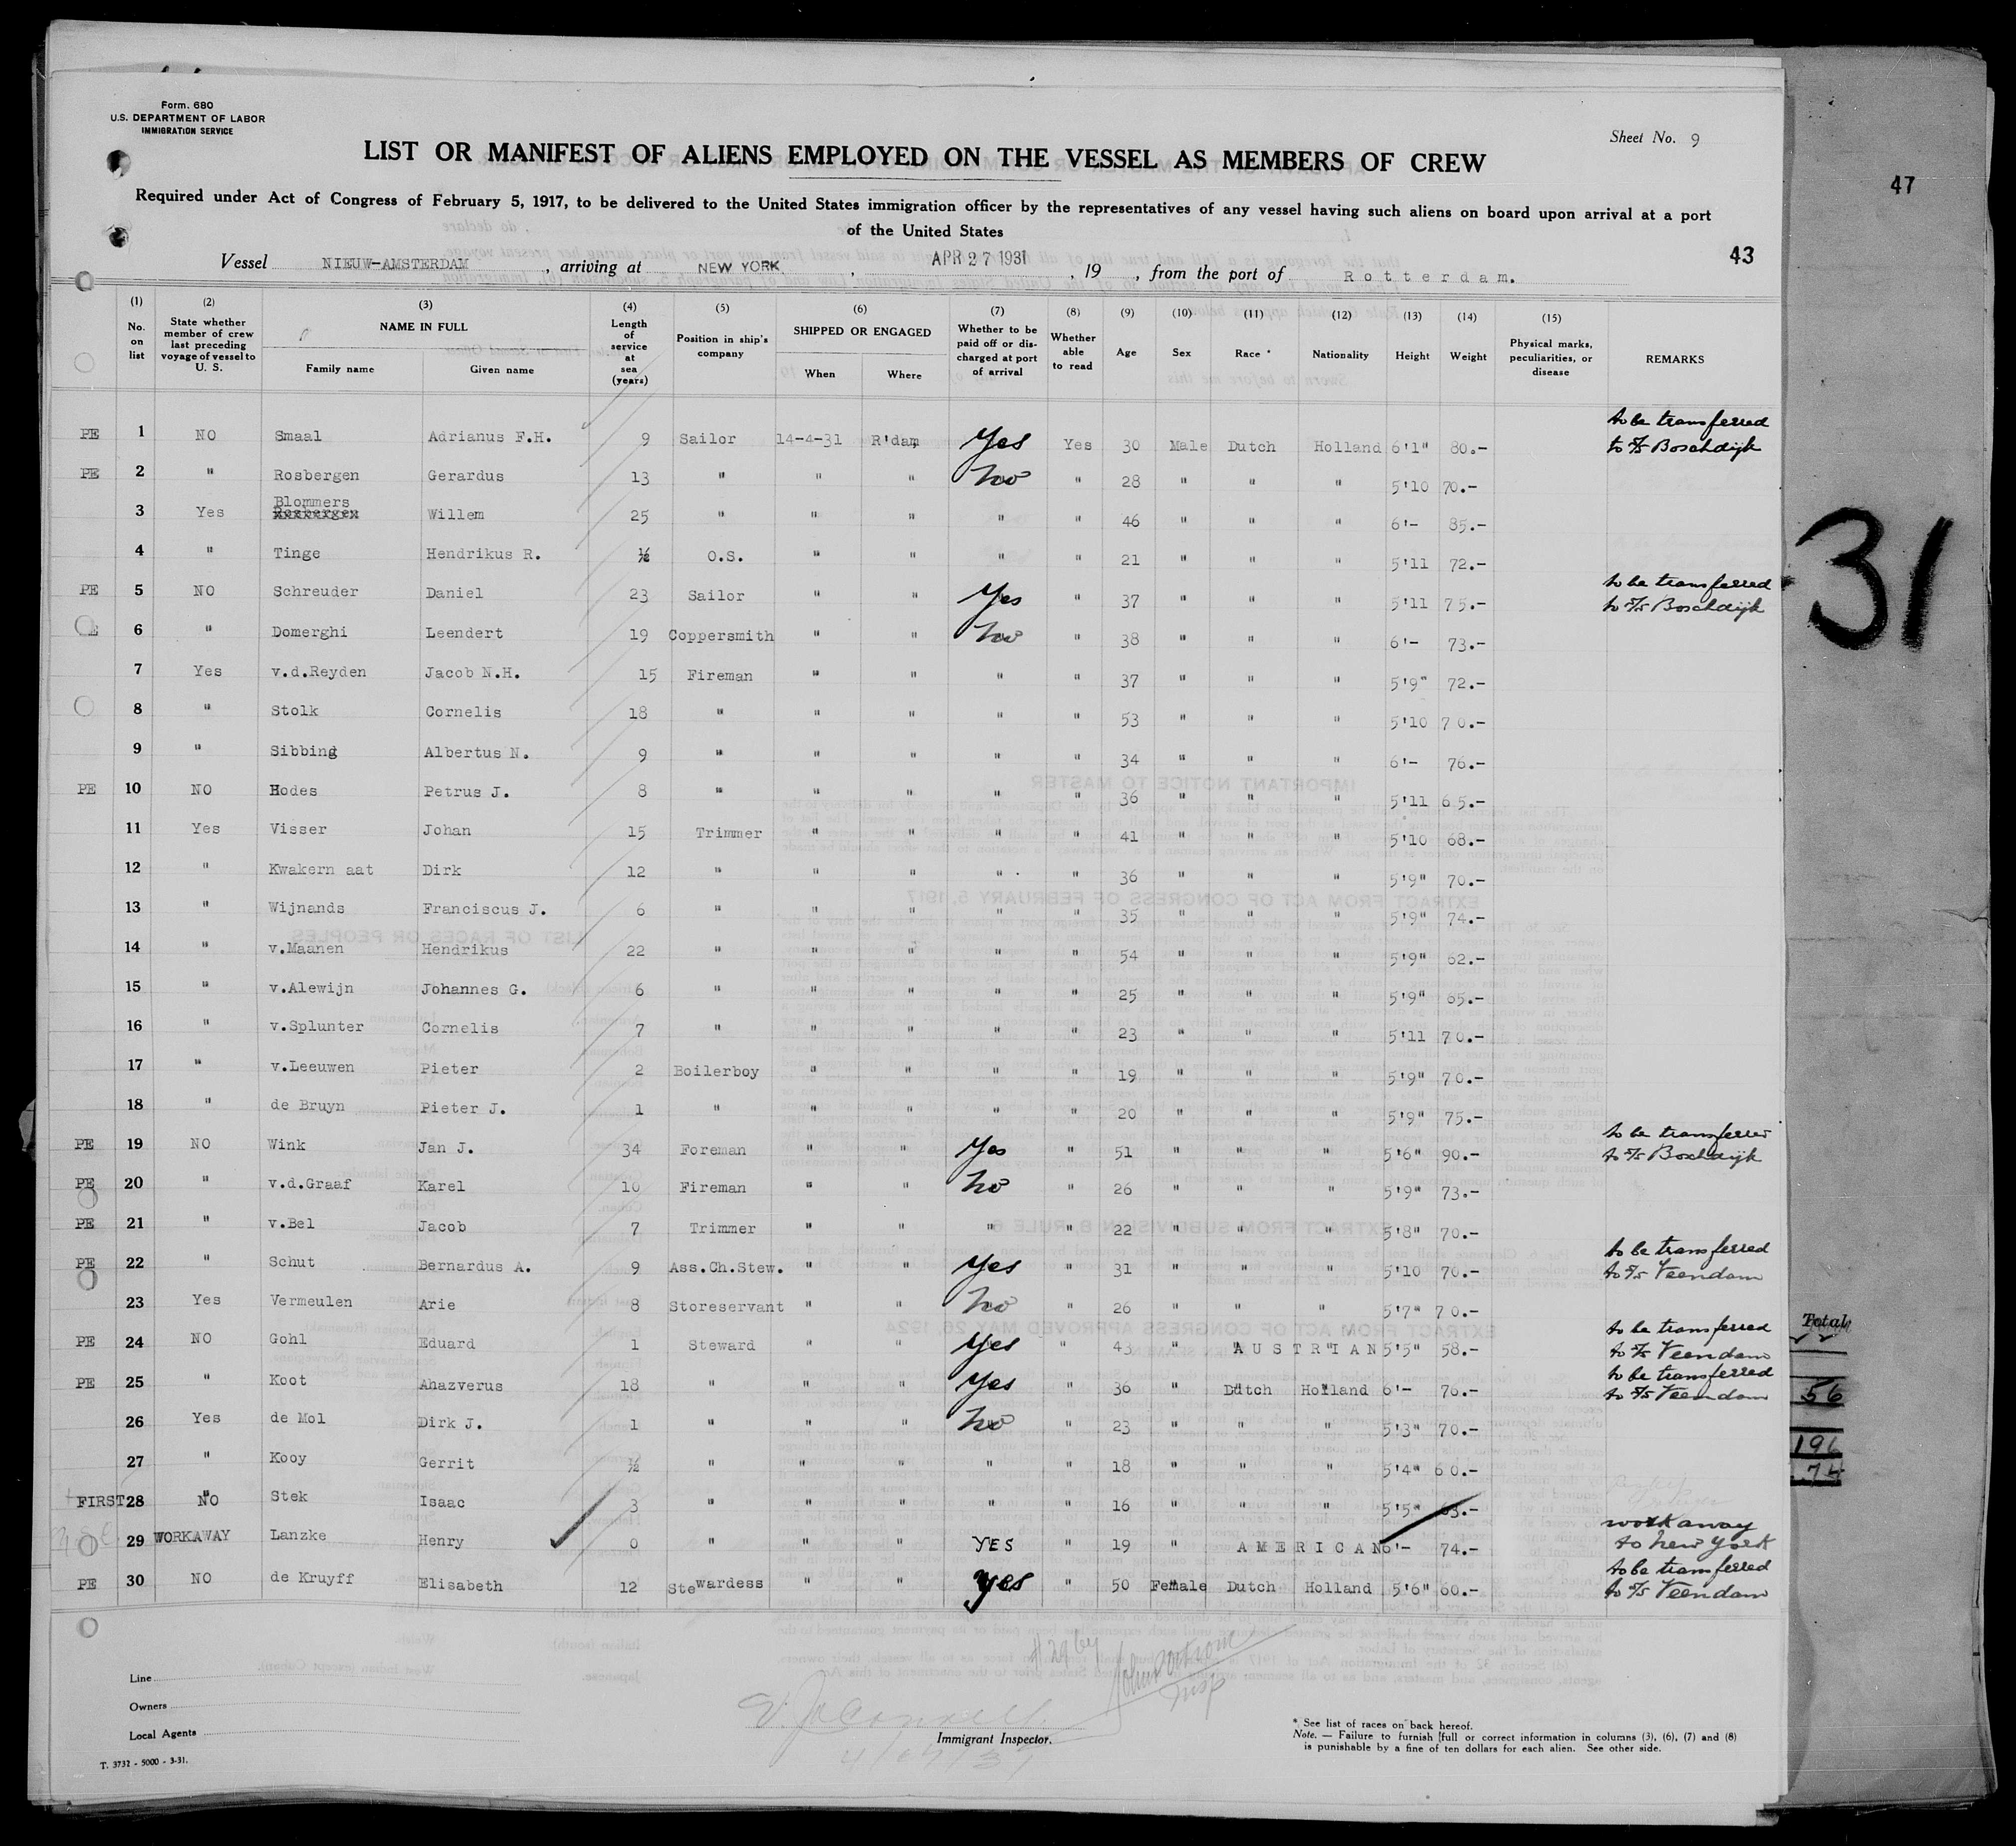 Form. 680
U.S. DEPARTMENT OF LABOR
IMMIGRATION SERVICE
Sheet No. 9
LIST OR MANIFEST OF ALIENS EMPLOYED ON THE VESSEL AS MEMBERS OF CREW
47
Required under Act of Congress of February 5, 1917, to be delivered to the United States immigration officer by the representatives of any vessel having such aliens on board upon arrival at a port
of the United States
43
Vessel NIEUW-AMSTERDAM, arriving at NEW YORK, APR 27 1931, 19 , from the port of Rotterdam.
(1) No. on list (2) State whether member of crew last preceding voyage of vessel to U. S. (3) NAME IN FULL Family name Given name (4) Length of service at sea (years) (5) Position in ship's company (6) SHIPPED OR ENGAGED When Where (7) Whether to be paid off or discharged at port of arrival (8) Whether able to read (9) Age (10) Sex (11) Race * (12) Nationality (13) Height (14) Weight (15) Physical marks, peculiarities, or disease REMARKS
PE 1 NO Smaal Adrianus F.H. 9 Sailor 14-4-31 R'dam Yes Yes 30 Male Dutch Holland 6'1" 80.- to be transferred to S/S Boschdijk
PE 2 " Rosbergen Gerardus 13 " " " No " 28 " " " 5'10 70.-
3 Yes Blommers Willem 25 " " " " " 46 " " " 6'- 85.-
4 " Tinge Hendrikus R. ½ O.S. " " " " 21 " " " 5'11 72.-
PE 5 NO Schreuder Daniel 23 Sailor " " Yes " 37 " " " 5'11 75.- to be transferred to S/S Boschdijk
6 " Domerghi Leendert 19 Coppersmith " " No " 38 " " " 6'- 73.-
7 Yes v.d.Reyden Jacob N.H. 15 Fireman " " " " 37 " " " 5'9" 72.-
8 " Stolk Cornelis 18 " " " " " 53 " " " 5'10 70.-
9 " Sibbing Albertus N. 9 " " " " " 34 " " " 6'- 76.-
PE 10 NO Hodes Petrus J. 8 " " " " " 36 " " " 5'11 65.-
11 Yes Visser Johan 15 Trimmer " " " " 41 " " " 5'10 68.-
12 " Kwakern aat Dirk 12 " " " " " 36 " " " 5'9" 70.-
13 " Wijnands Franciscus J. 6 " " " " " 35 " " " 5'9" 74.-
14 " v.Maanen Hendrikus 22 " " " " " 54 " " " 5'9" 62.-
15 " v.Alewijn Johannes G. 6 " " " " " 25 " " " 5'9" 65.-
16 " v.Splunter Cornelis 7 " " " " " 23 " " " 5'11 70.-
17 " v.Leeuwen Pieter 2 Boilerboy " " " " 19 " " " 5'9" 70.-
18 " de Bruyn Pieter J. 1 " " " " " 20 " " " 5'9" 75.-
PE 19 NO Wink Jan J. 34 Foreman " " Yes " 51 " " " 5'6" 90.- to be transferred to S/S Boschdijk
PE 20 " v.d.Graaf Karel 10 Fireman " " No " 26 " " " 5'9" 73.-
PE 21 " v.Bel Jacob 7 Trimmer " " " " 22 " " " 5'8" 70.-
PE 22 " Schut Bernardus A. 9 Ass.Ch.Stew. " " Yes " 31 " " " 5'10 70.- to be transferred to S/S Veendam
23 Yes Vermeulen Arie 8 Storeservant " " No " 26 " " " 5'7" 70.-
PE 24 NO Gohl Eduard 1 Steward " " Yes " 43 " AUSTRIAN 5'5" 58.- to be transferred to S/S Veendam
PE 25 " Koot Ahazverus 18 " " " Yes " 36 " Dutch Holland 6'- 76.- to be transferred to S/S Veendam
26 Yes de Mol Dirk J. 1 " " " No " 23 " " " 5'3" 70.-
27 " Kooy Gerrit ½ " " " " " 18 " " " 5'4" 60.-
FIRST 28 NO Stek Isaac 3 " " " " " 16 " " " 5'5" 63.-
29 WORKAWAY Lanzke Henry 0 " " " YES " 19 " AMERICAN 6'- 74.- workaway to New York
PE 30 NO de Kruyff Elisabeth 12 Stewardess " " yes " 50 Female Dutch Holland 5'6" 60.- to be transferred to S/S Veendam
31
Total
56
196
74
Line
Owners
Local Agents
T. 3732 - 5000 - 3-31.
#29 by
Insp
Immigrant Inspector.
* See list of races on back hereof.
Note. — Failure to furnish full or correct information in columns (3), (6), (7) and (8)
is punishable by a fine of ten dollars for each alien. See other side.